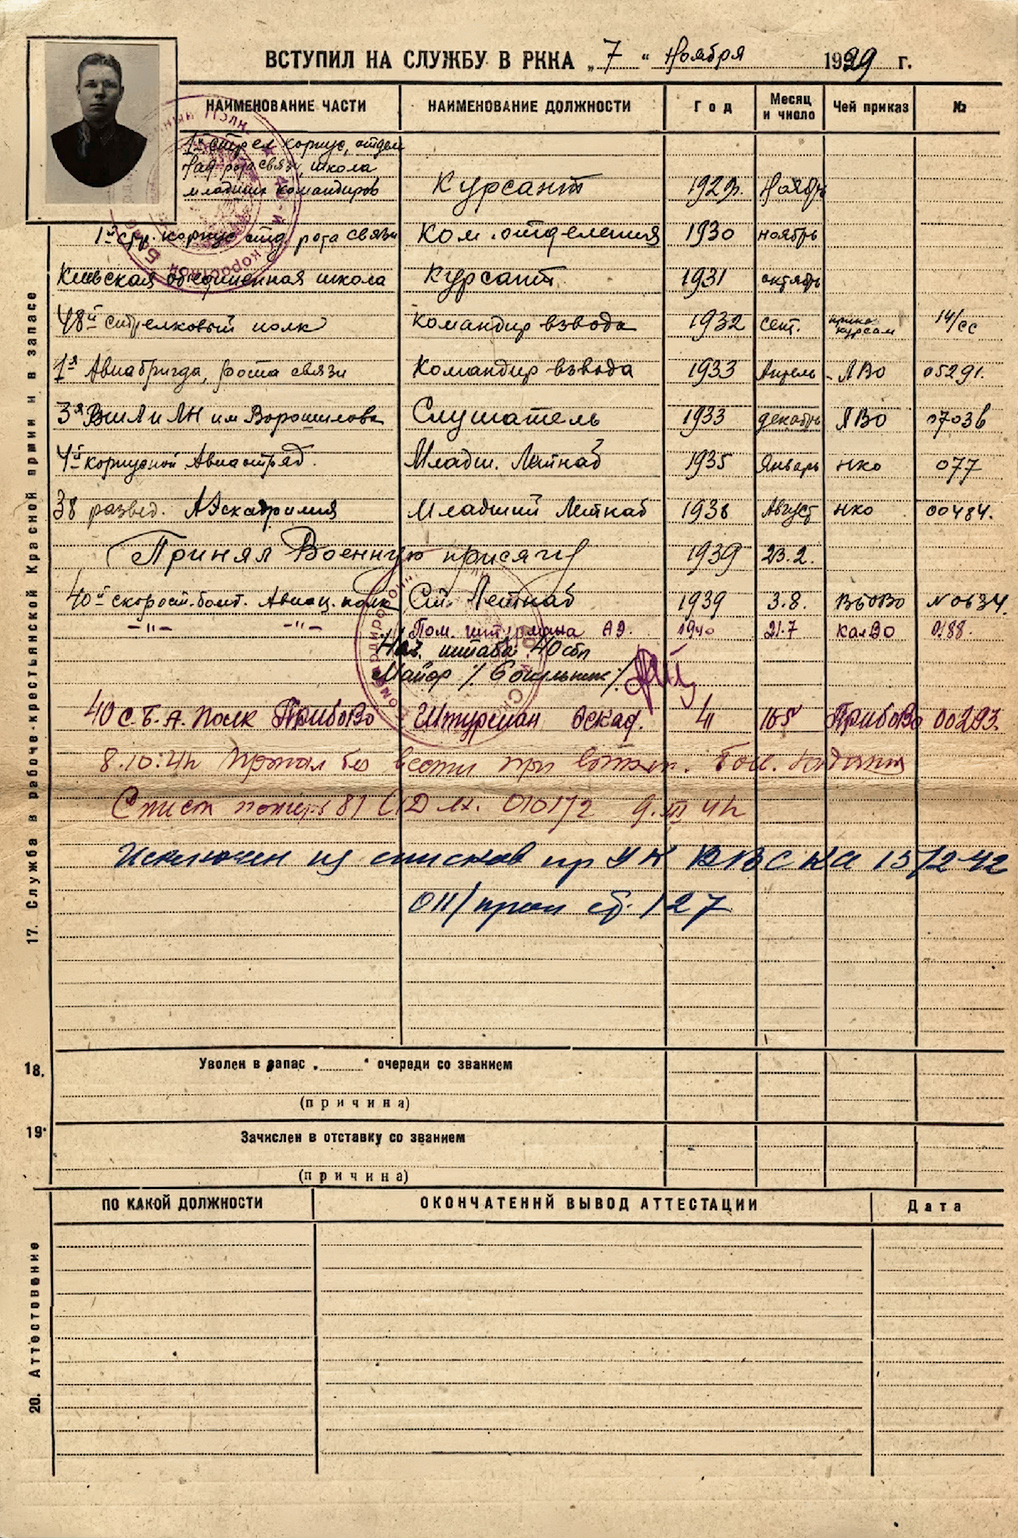 ВСТУПИЛ НА СЛУЖБУ В РККА „7“ Ноября 1929 г.
НАИМЕНОВАНИЕ ЧАСТИ НАИМЕНОВАНИЕ ДОЛЖНОСТИ Год Месяц и число Чей приказ №
1й стрел корпус, отдел
рота связи, школа
младших командиров Курсант 1929г. Ноябрь
1й стр. корпус отд. рота связи Ком. отделения 1930 ноябрь
Киевская объединенная школа Курсант 1931 октябрь
48й стрелковый полк командир взвода 1932 сент. 14/сс
1я Авиабригада, рота связи Командир взвода 1933 Апрель ЛВО 05291.
3я ВШЛиЛН им Ворошилова Слушатель 1933 декабрь ЛВО 07036
4й корпусной Авиаотряд. Младш. Летнаб 1935 Январь НКО 077
38 развед. АЭскадрилия Младший Летнаб 1938 Август НКО 00484.
Принял Военную присягу 1939 23.2.
40й скорост. бомб. Авиац. полк Ст. Летнаб 1939 3.8. №0634.
-"- -"- Пом. штурмана АЭ. 1940 21.7 КалВО 0188.
Нач. штаба 40сбп
Майор
40 С.Б.А. Полк ПрибОВо Штурман Эскад. 41 16 5 ПрибОВо 00293.
8.10.41г Пропал без вести при
Список потерь
Исключен из списков пр УК ВВС КА 15/2-42
011/
17. Служба в рабоче-крестьянской Красной армии и в запасе
18. Уволен в запас „......“ очереди со званием
(причина)
19. Зачислен в отставку со званием
(причина)
ПО КАКОЙ ДОЛЖНОСТИ ОКОНЧАТЕННЙ ВЫВОД АТТЕСТАЦИИ Дата
20. Аттестовение